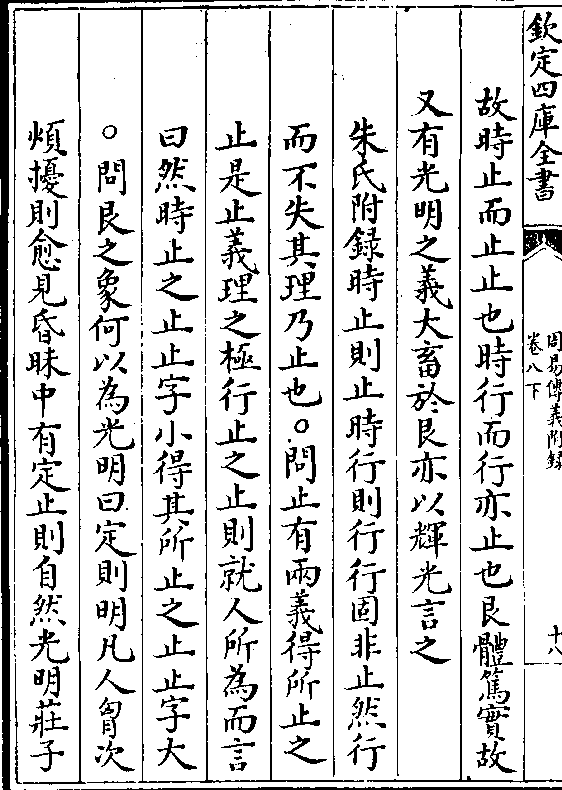 欽定四庫全書
周易傳義附録
卷八下
十八
故時止而止止也時行而行亦止也艮體篤實故
又有光明之義大畜於艮亦以輝光言之
朱氏附録時止則止時行則行行固非止然行
而不失其理乃止也○問止有兩義得所止之
止是止義理之極行止之止則就人所為而言
曰然時止之止止字小得其所止之止止字大
○問艮之象何以為光明曰定則明凡人胷次
煩擾則愈見昏昧中有定止則自然光明莊子